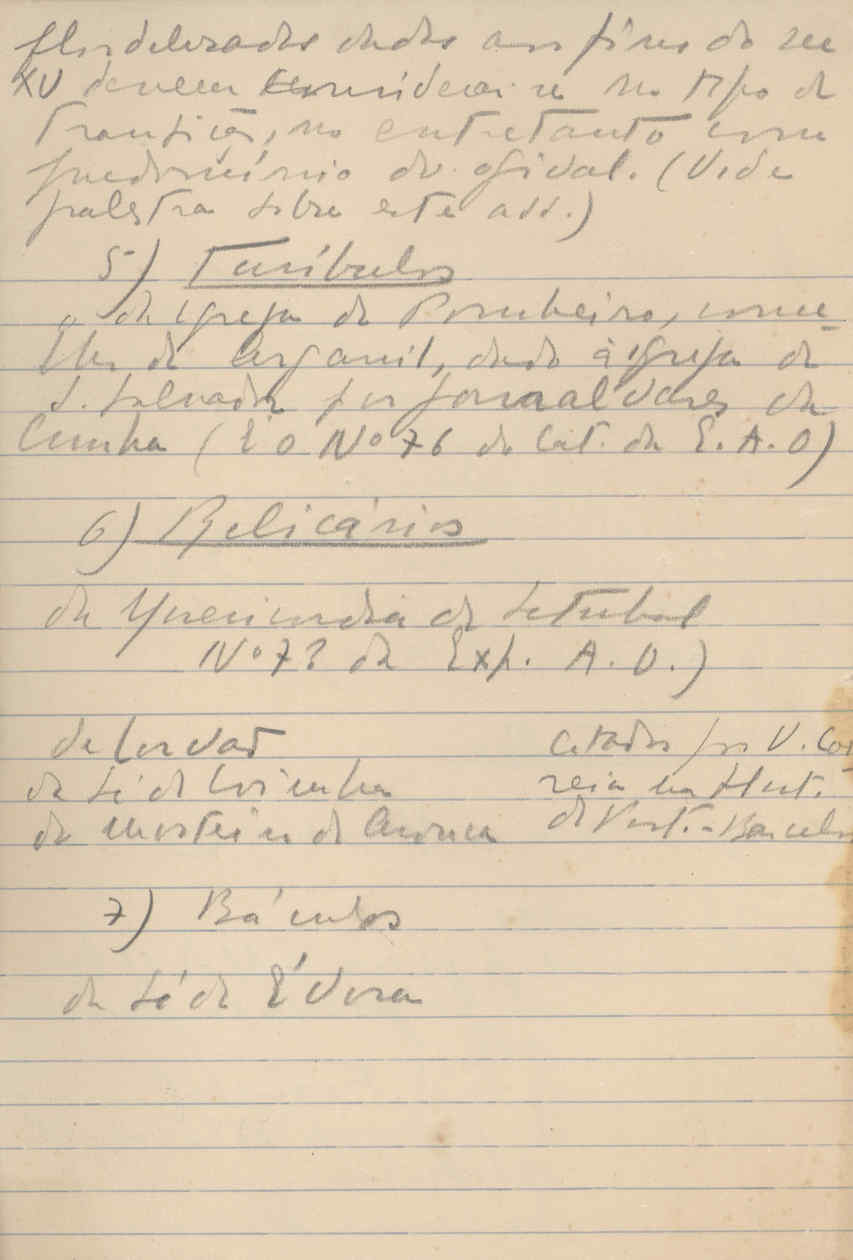 flordelisadas dadas aos fins do sec
XV devem considerar-se no tipo de
transição, no entretanto com
predomínio do ogival. (Vide
palestra sobre este ass.)
5) Turíbulos
o da Igreja de Pombeiro, conce-
lho de Arganil, dado à igreja de
S. Salvador por Alvares da
Cunha (É o Nº 76 do Cat. da E. A. O)
6) Relicários
da Misericordia de Setubal
Nº 73 da Exp. A. O.)
de Lorvão
da Sé de Coimbra
do mosteiro de Arouca
citados por V. Cor
reia na Hist.
de Port. - Barcelos
7) Báculos
da Sé de Évora